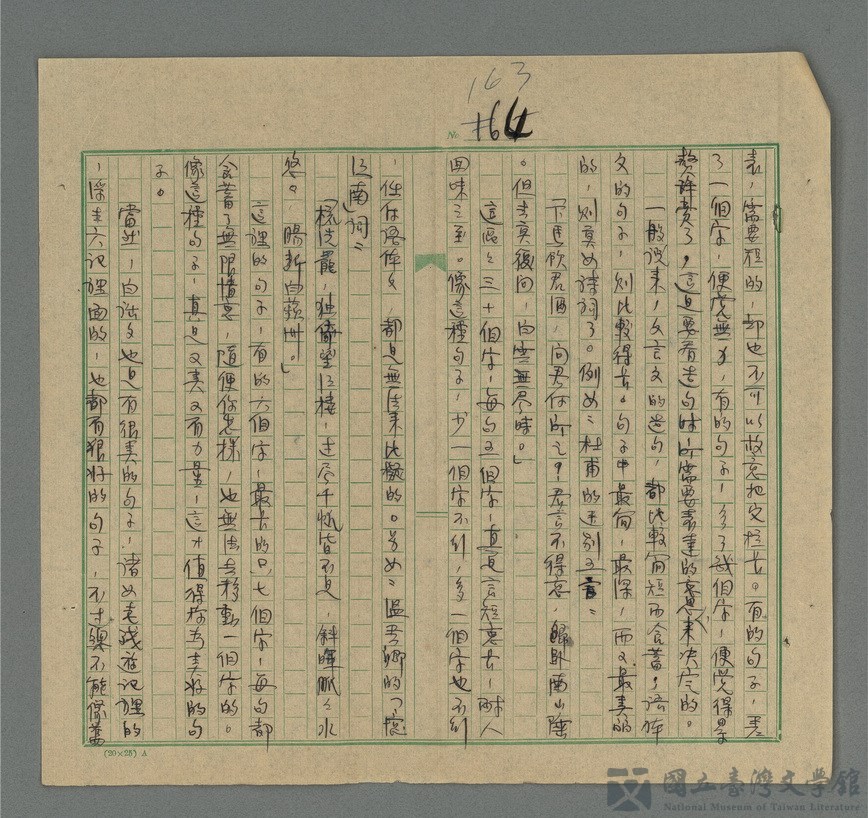 163
164
No.
表，需要短的，却也不可以故意把它拉長。有的句子，丟
了一個字，便覺無力，有的句子，多了幾個字，便覺得累
贅詳費了，這是要看造句時，所需要表達的意思來决定的。
一般說來，文言文的造句，都比較簡短而含蓄，語体
文的句子，則比較得長。句子中最簡，最深，而又最美的
的，則莫如詩詞了。例如：杜甫的送别五言：
「下馬飲君酒，問君何所之，君言不得意，歸卧南山陲
。但去莫復問，白雲無尽時。」
這區々三十個字，每句五個字，真是言短意長，耐人
回味之至。像這種句子，少一個字不行，多一個字也不行
，任何語体文，都是無法來比擬的。另如：溫吉卿的「憶
江南」詞：
「梳洗罷，独倚望江樓，过尽千帆皆不是，斜暉脈々水
悠。腸斷白蘋州。」
這裡的句子，有的六個字，最長的只七個字，每句都
含蓄了無限情意，隨便你怎樣，也無法去移動一個字的。
像這種句子，真是又美又有力量，這才值得称为美好的句
子。
當然，白話文也是有很美的句子，諸如老殘遊記裡的
，浮生六记裡面的，也都有狠好的句子，不过總不能像舊
(20×25) A
國立臺灣文學館
National Museum of Taiwan Literature